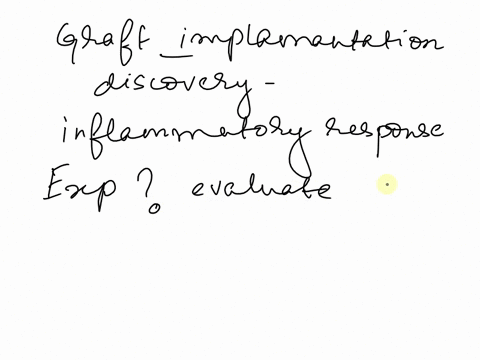 Graft implamantation
discovery -
inflammatory response
Exp ? evaluate